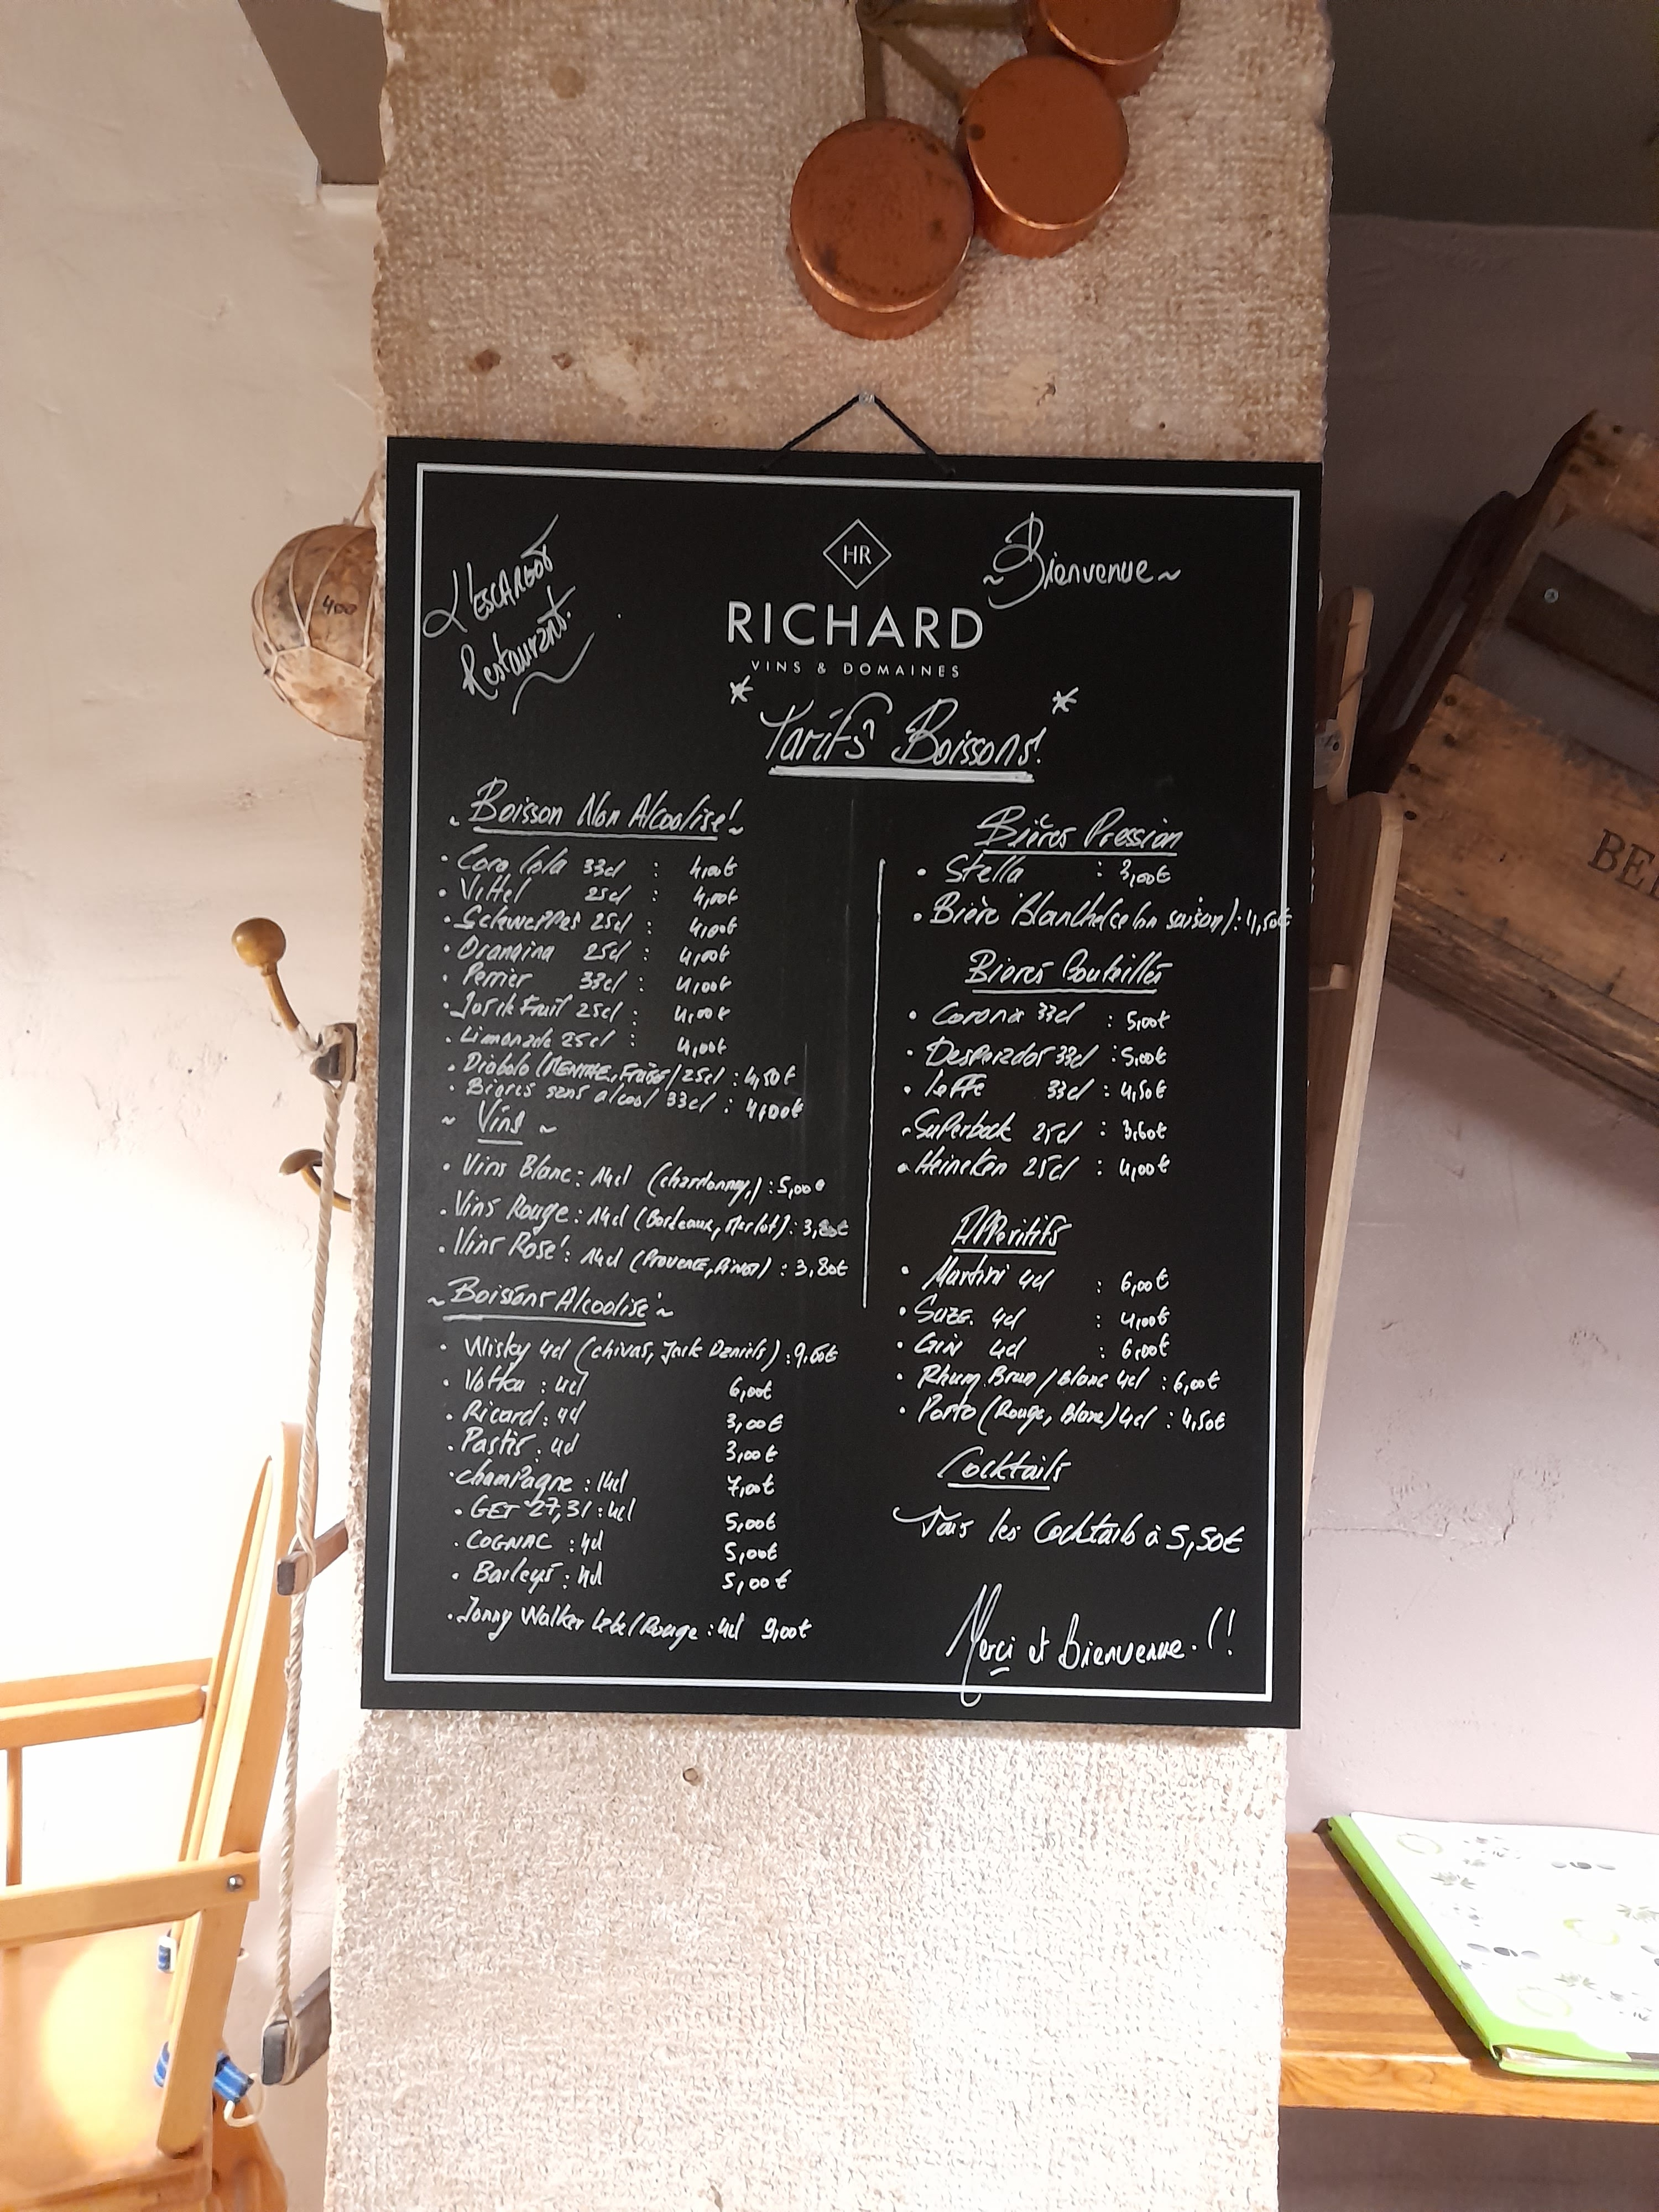 L'ESCARGOT
Restaurant.
HR
RICHARD
VINS & DOMAINES
~ Bienvenue ~
* Tarifs Boissons! *
~ Boisson Non Alcoolisé! ~
• Coca Cola 33cl : 4,00€
• Vittel 25cl : 4,00€
• Schweppes 25cl : 4,00€
• Orangina 25cl : 4,00€
• Perrier 33cl : 4,00€
• Fruit 25cl : 4,00€
• Limonade 25cl : 4,00€
• Diabolo (MENTHE, FRAISE) 25cl : 4,50€
• Bières sans alcool 33cl : 4,00€
~ Vins ~
• Vins Blanc : 14cl (chardonnay,) : 5,00€
• Vins Rouge : 14cl (Bordeaux, Merlot) : 3,80€
• Vins Rosé : 14cl (PROVENCE, PINOT) : 3,80€
~ Boissons Alcoolisé ~
• Wisky 4cl (chivas, Jack Daniels) : 9,00€
• Votka : 4cl 6,00€
• Ricard : 4cl 3,00€
• Pastis : 4cl 3,00€
• champagne : 14cl 7,00€
• GET 27,31 : 4cl 5,00€
• COGNAC : 4cl 5,00€
• Baileys : 4cl 5,00€
• Jonny Walker Label Rouge : 4cl 9,00€
Bières Pression
• Stella : 3,00€
• Bière Blanche (selon saison) : 4,50€
Bieres Bouteilles
• Corona 33cl : 5,00€
• Desperados 33cl : 5,00€
• leffe 33cl : 4,50€
• Superbock 25cl : 3,60€
• Heineken 25cl : 4,00€
Apperitifs
• Martini 4cl : 6,00€
• SUZE. 4cl : 4,00€
• Gin 4cl : 6,00€
• Rhum Brun / Blanc 4cl : 6,00€
• Porto (Rouge, Blanc) 4cl : 4,50€
Cocktails
Tous les Cocktails à 5,50€
Merci et Bienvenue.!!
400
BE